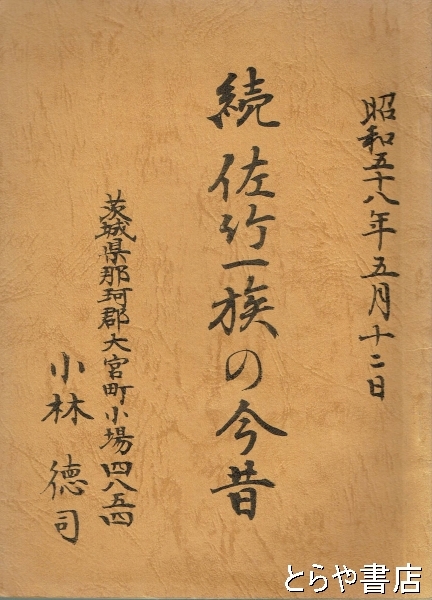 昭和五十八年五月十二日
続 佐竹一族の今昔
茨城県那珂郡大宮町小場四八五四
小林 徳司
とらや書店